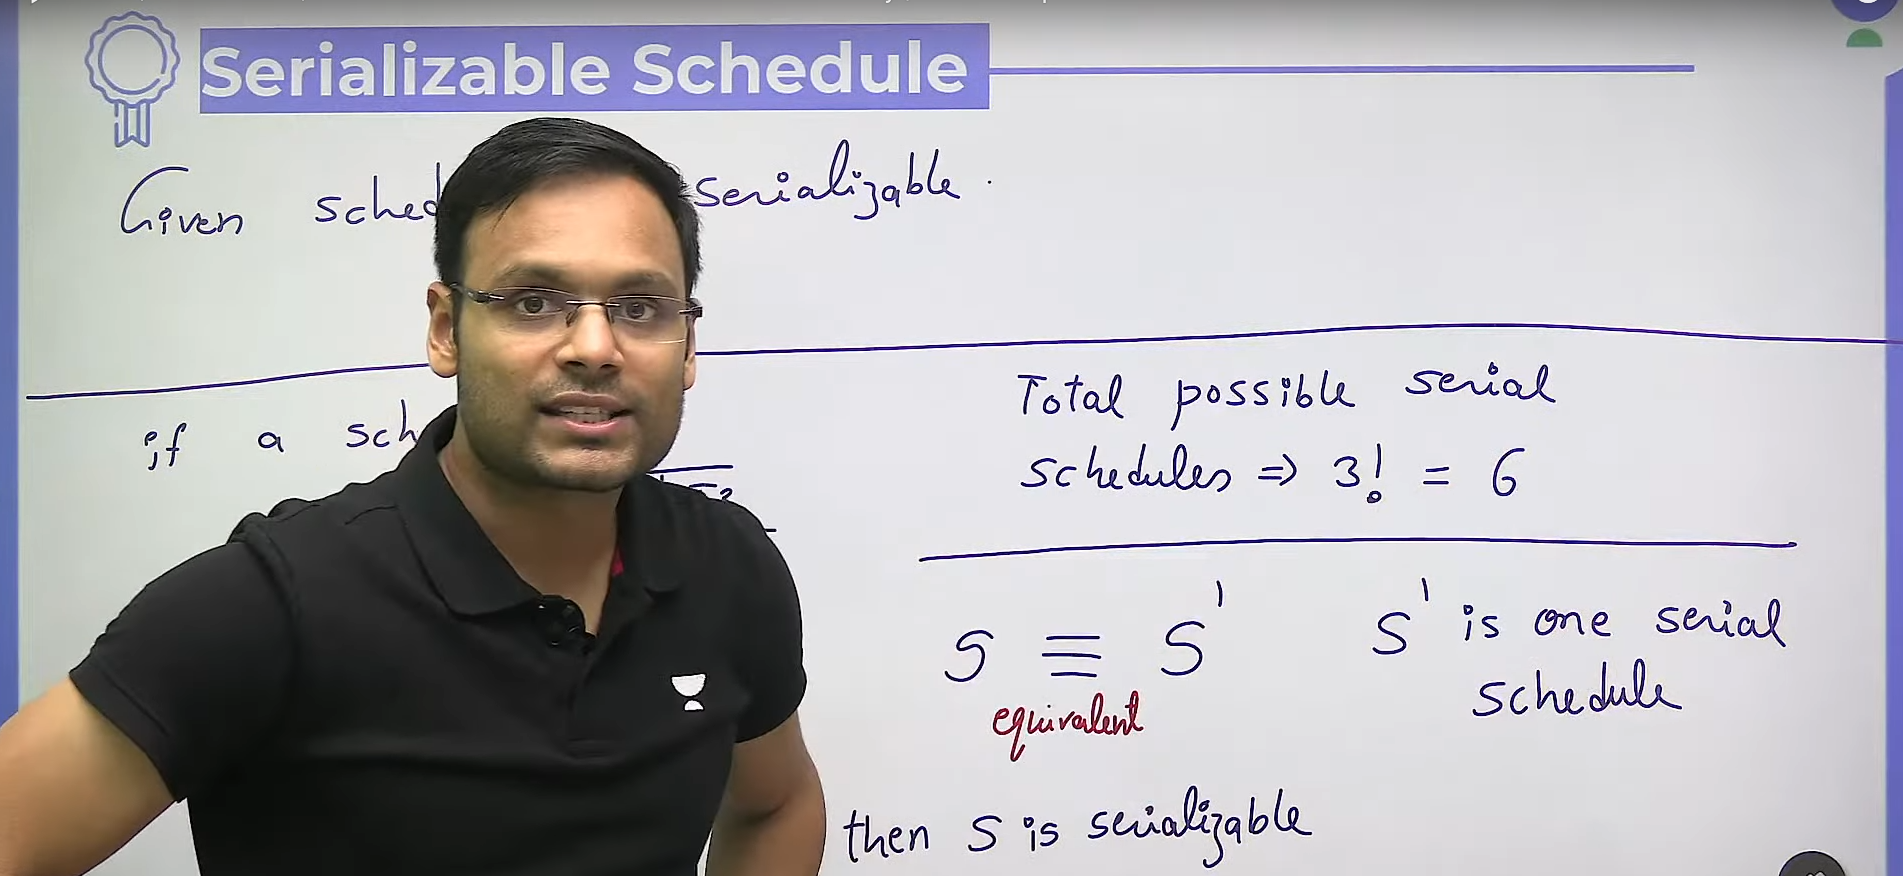 Serializable Schedule
Given serializable.
if a
Total possible serial
schedules ⇒ 3! = 6
S ≡ S' S' is one serial
equivalent schedule
then S is serializable